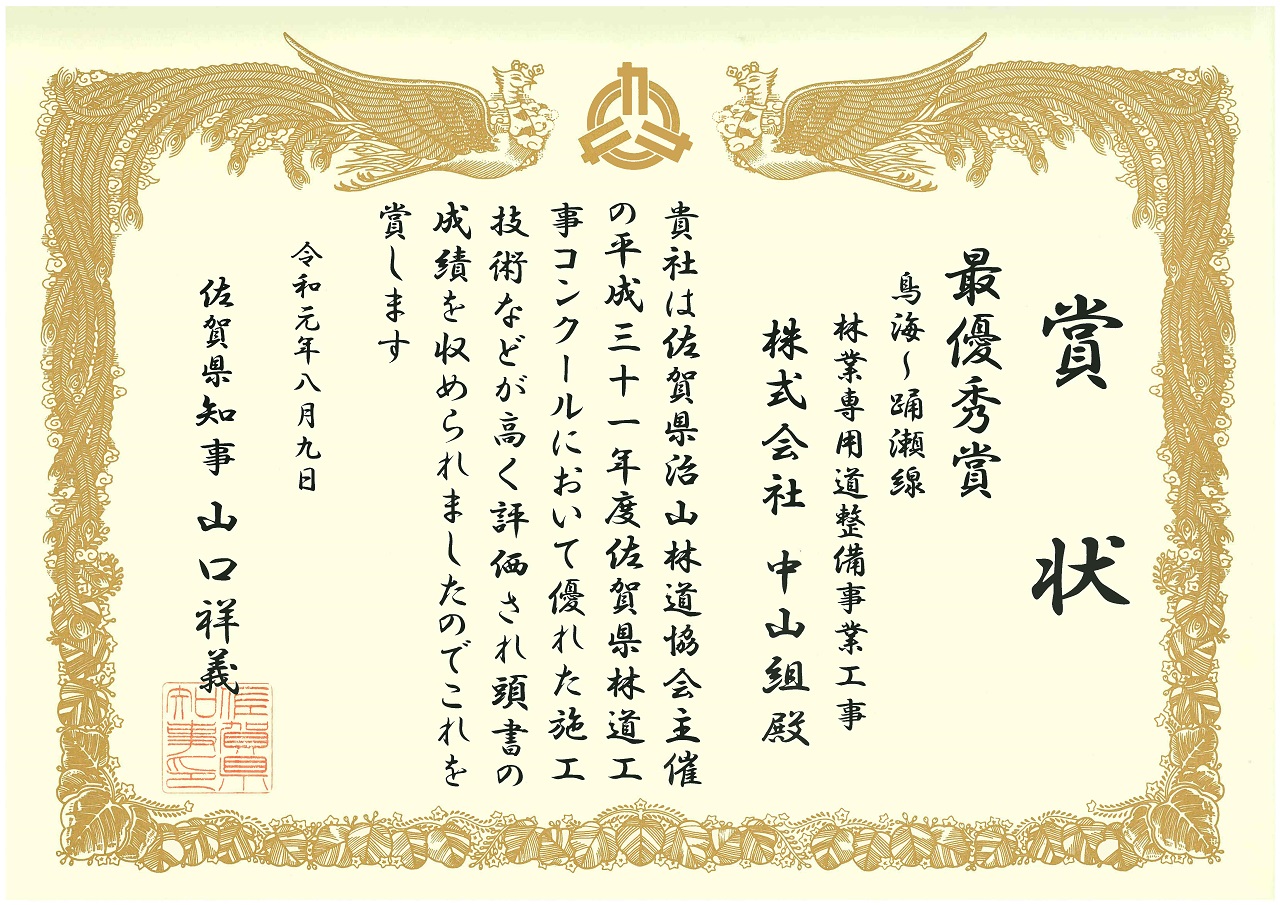 賞状
最優秀賞
鳥海～踊瀬線
林業専用道整備事業工事
株式会社 中山組殿
貴社は佐賀県治山林道協会主催
の平成三十一年度佐賀県林道工
事コンクールにおいて優れた施工
技術などが高く評価され頭書の
成績を収められましたのでこれを
賞します
令和元年八月九日
佐賀県知事 山口祥義
佐賀県
知事印